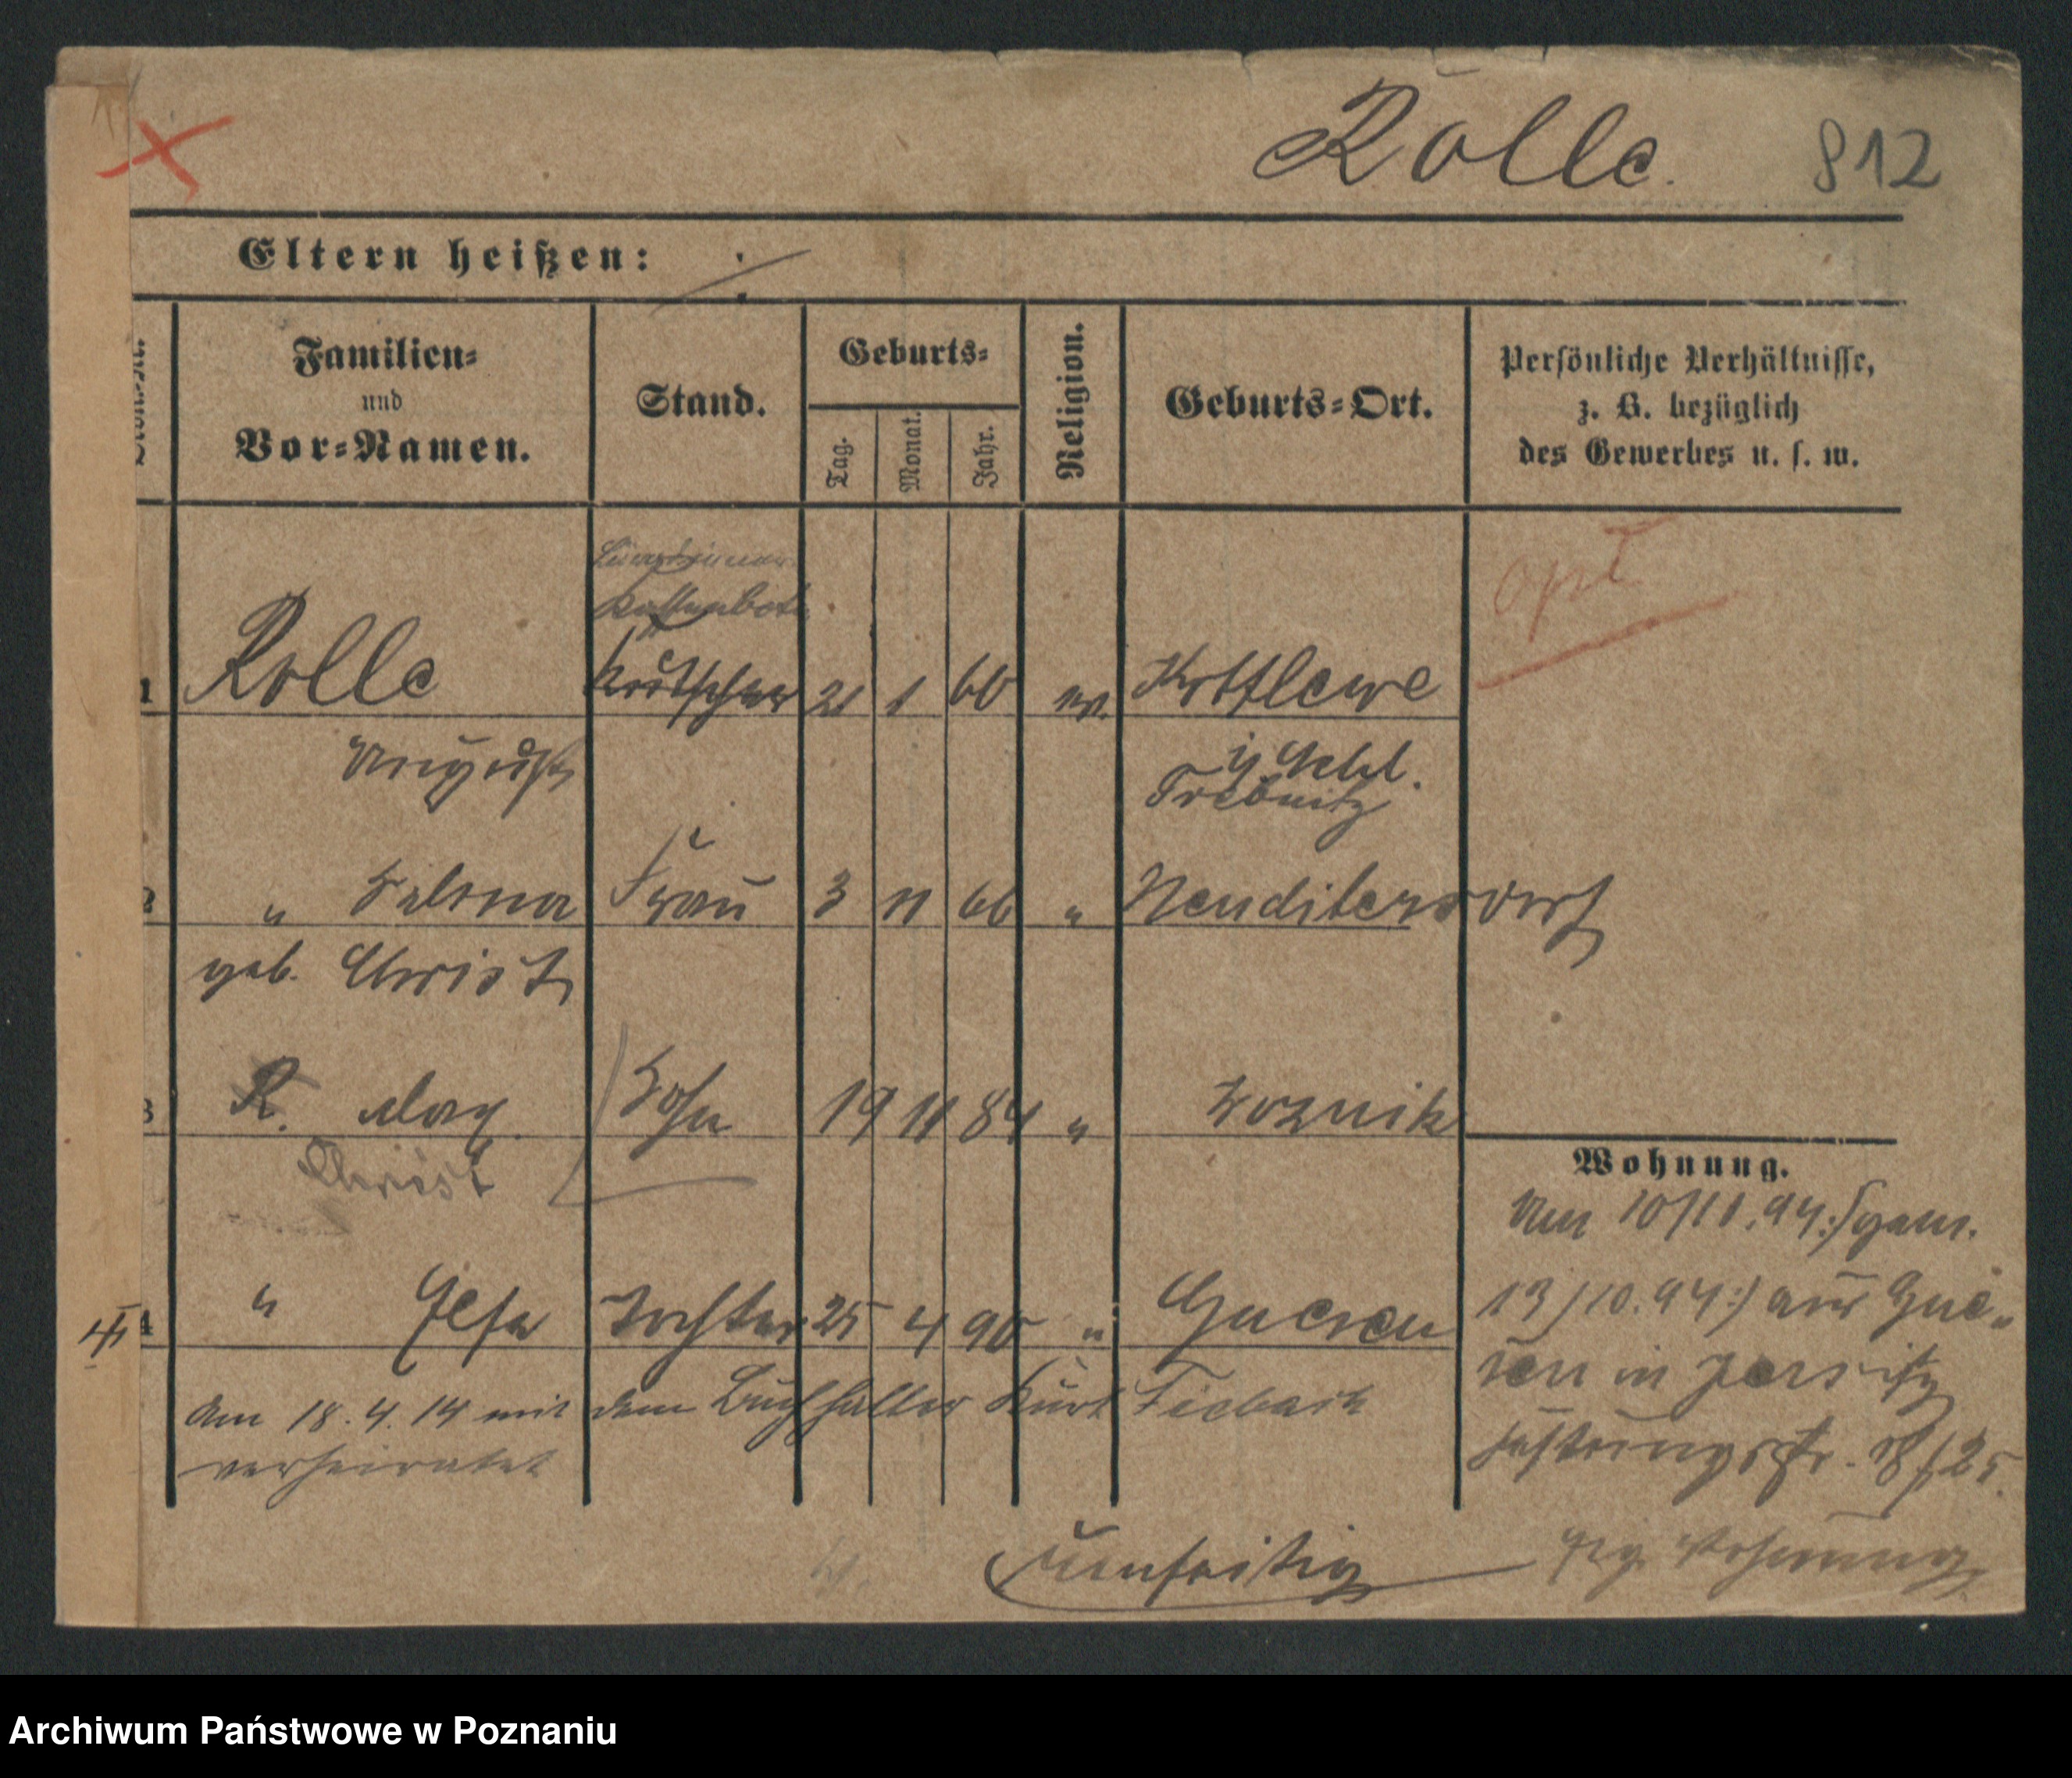 Rolle. 812
Eltern heißen: ./.
Familien-
und
Vor-Namen.
Stand.
Geburts-
Tag.
Monat.
Jahr.
Religion.
Geburts-Ort.
Persönliche Verhältnisse,
z. B. bezüglich
des Gewerbes u. s. w.
Kassenbote
1 Rolle Kutscher 21 1 60 ev. Kottlewe
August
Trebnitz
2 " Frau 3 11 66 "
geb. Christ
3 R. Max Sohn 19 11 84 " Woznik
Christ
4 " Else Tochter 25 4 90 " Gnesen
Am 18.4.14 mit dem Buchhalter Kurt Fiebach
verheiratet
Wohnung.
Am 10/11.94:/gem.
13/10.94:/ aus Gne-
sen in Jersitz
umseitig
Wohnung
Archiwum Państwowe w Poznaniu